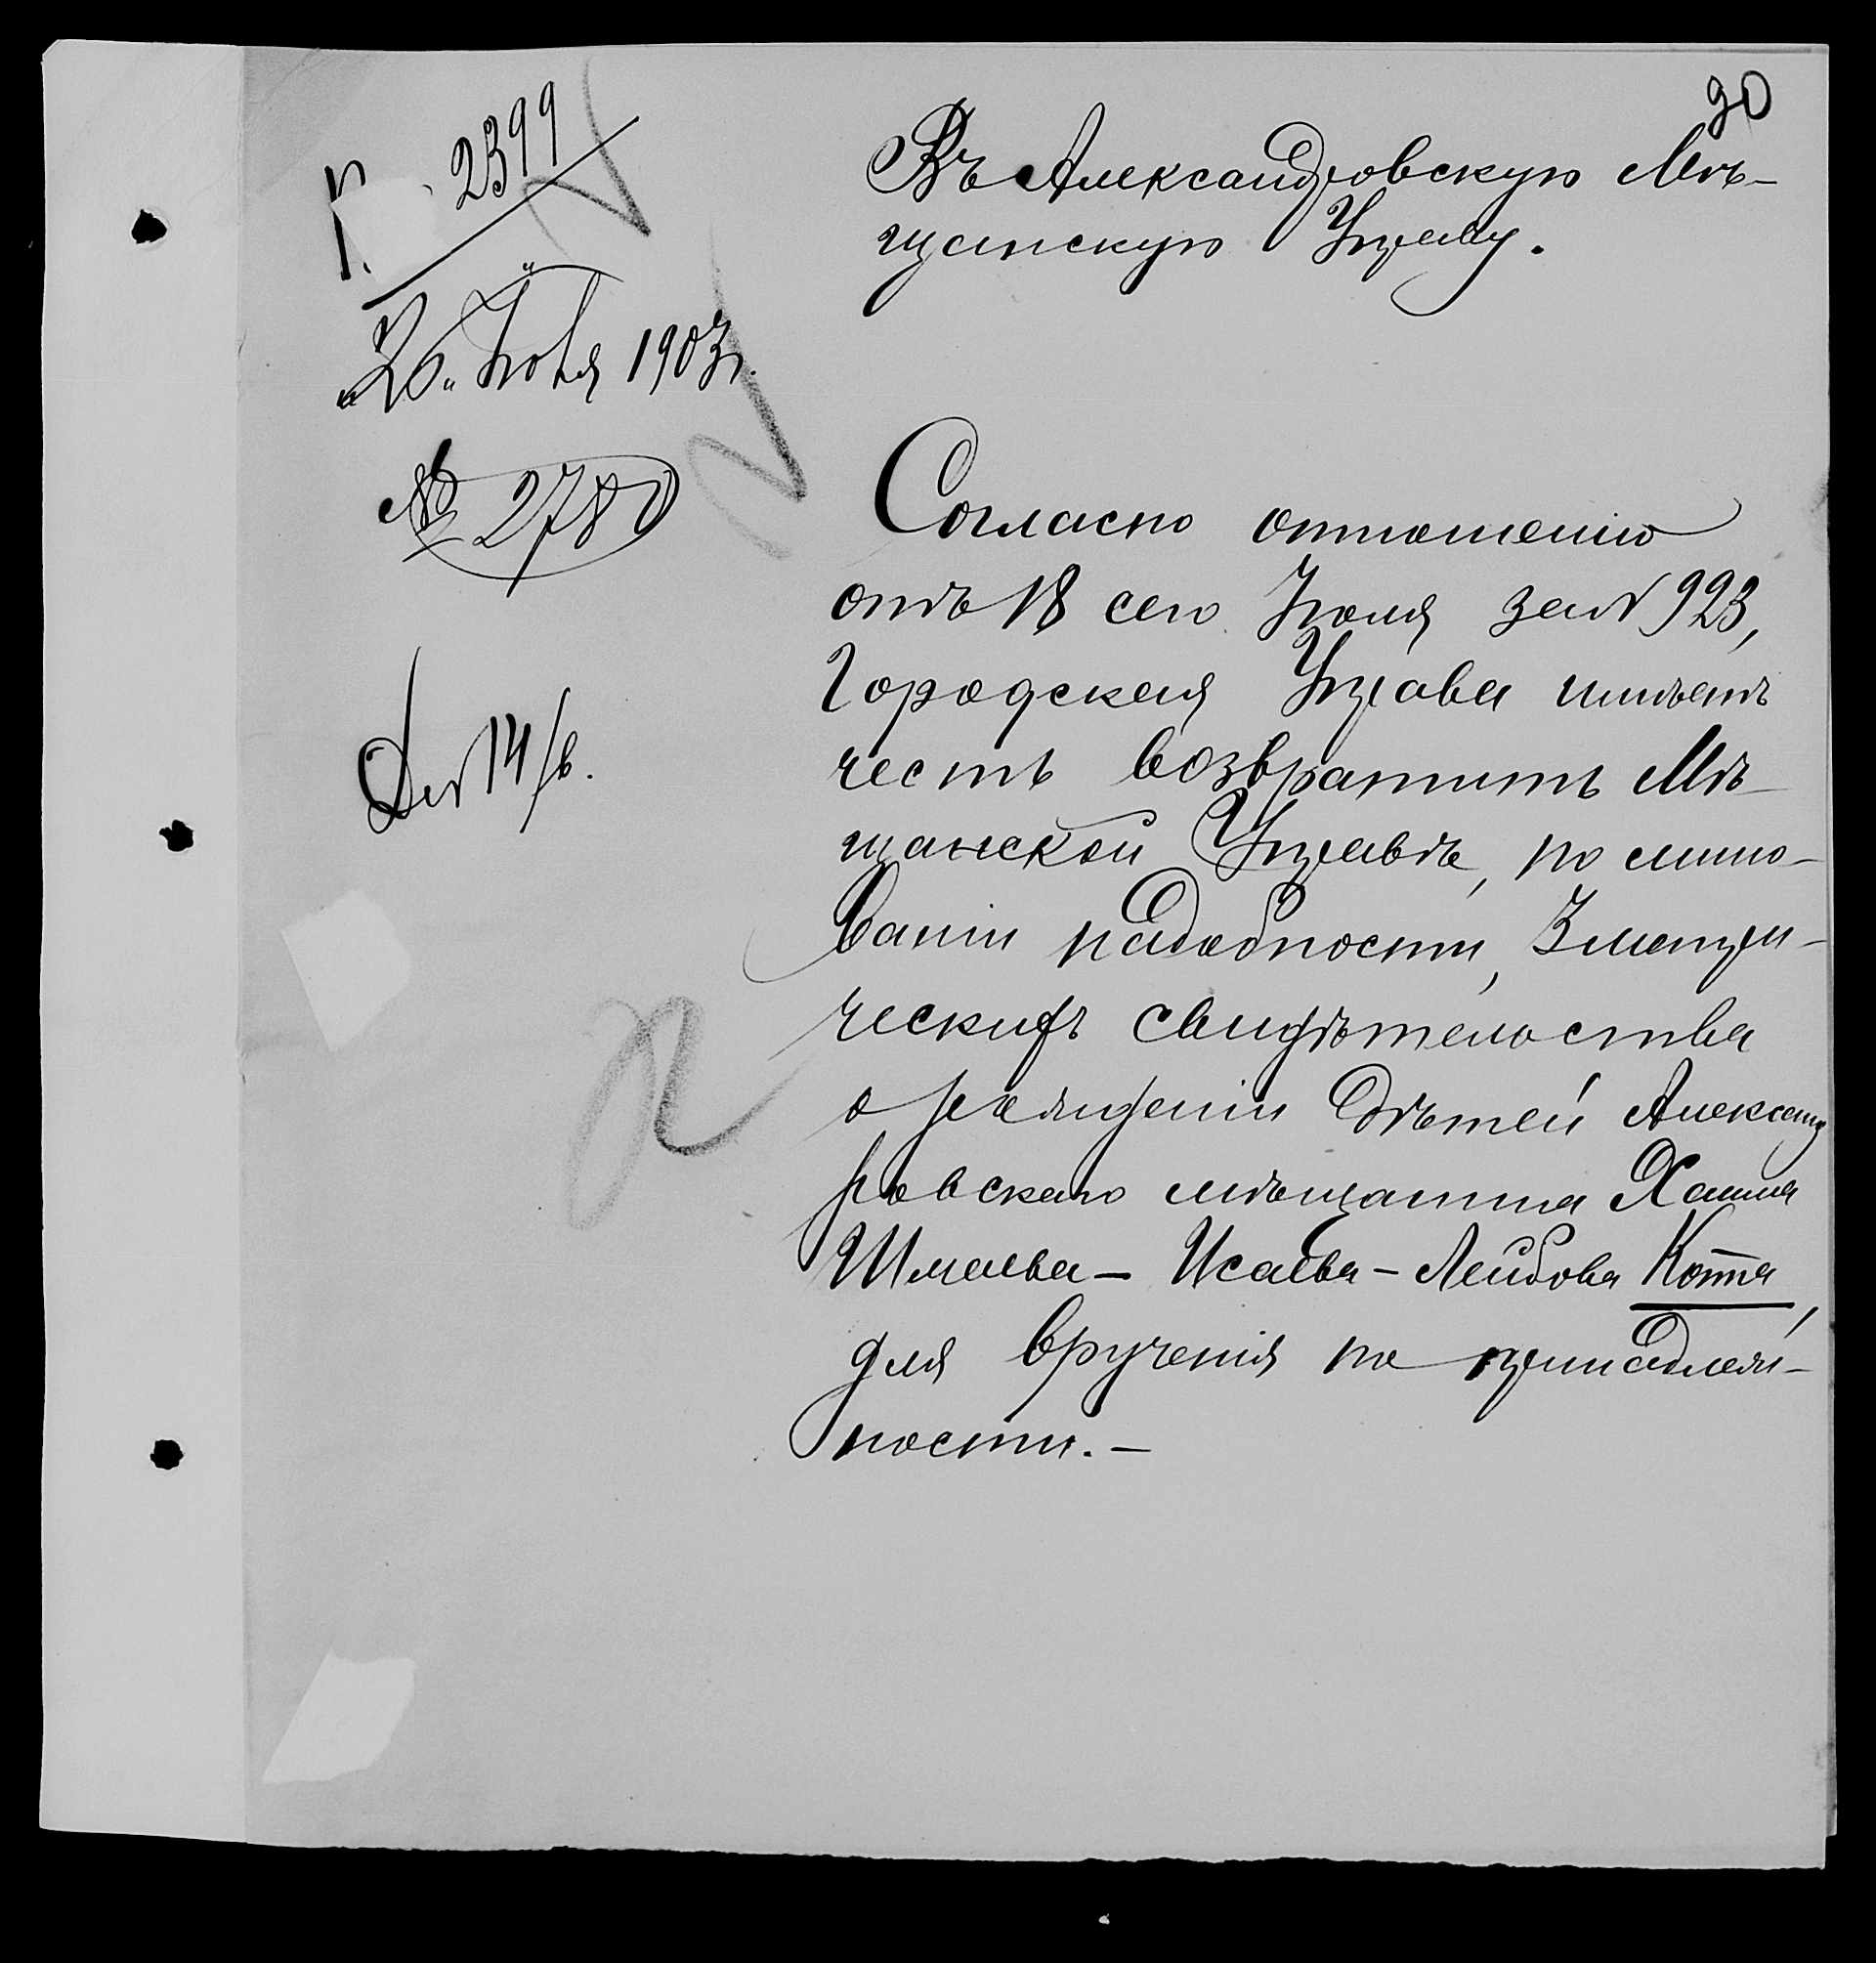 90
Въ Александровскую Мѣ-
щанскую Управу.
2399
"26" Іюля 1903 г.
№ 2780
Согласно отношенію
отъ 18 сего Іюля за № 923,
Городская Управа имѣетъ
честь возвратить Мѣ-
щанской Управѣ, по мино-
ваніи надобности, 3 метри-
ческихъ свидѣтельства
о рожденіи дѣтей Александ
ровскаго мѣщанина Хаима
Шмаева-Исаева-Лейбова Котта,
для врученія по принадлеж-
ности.-